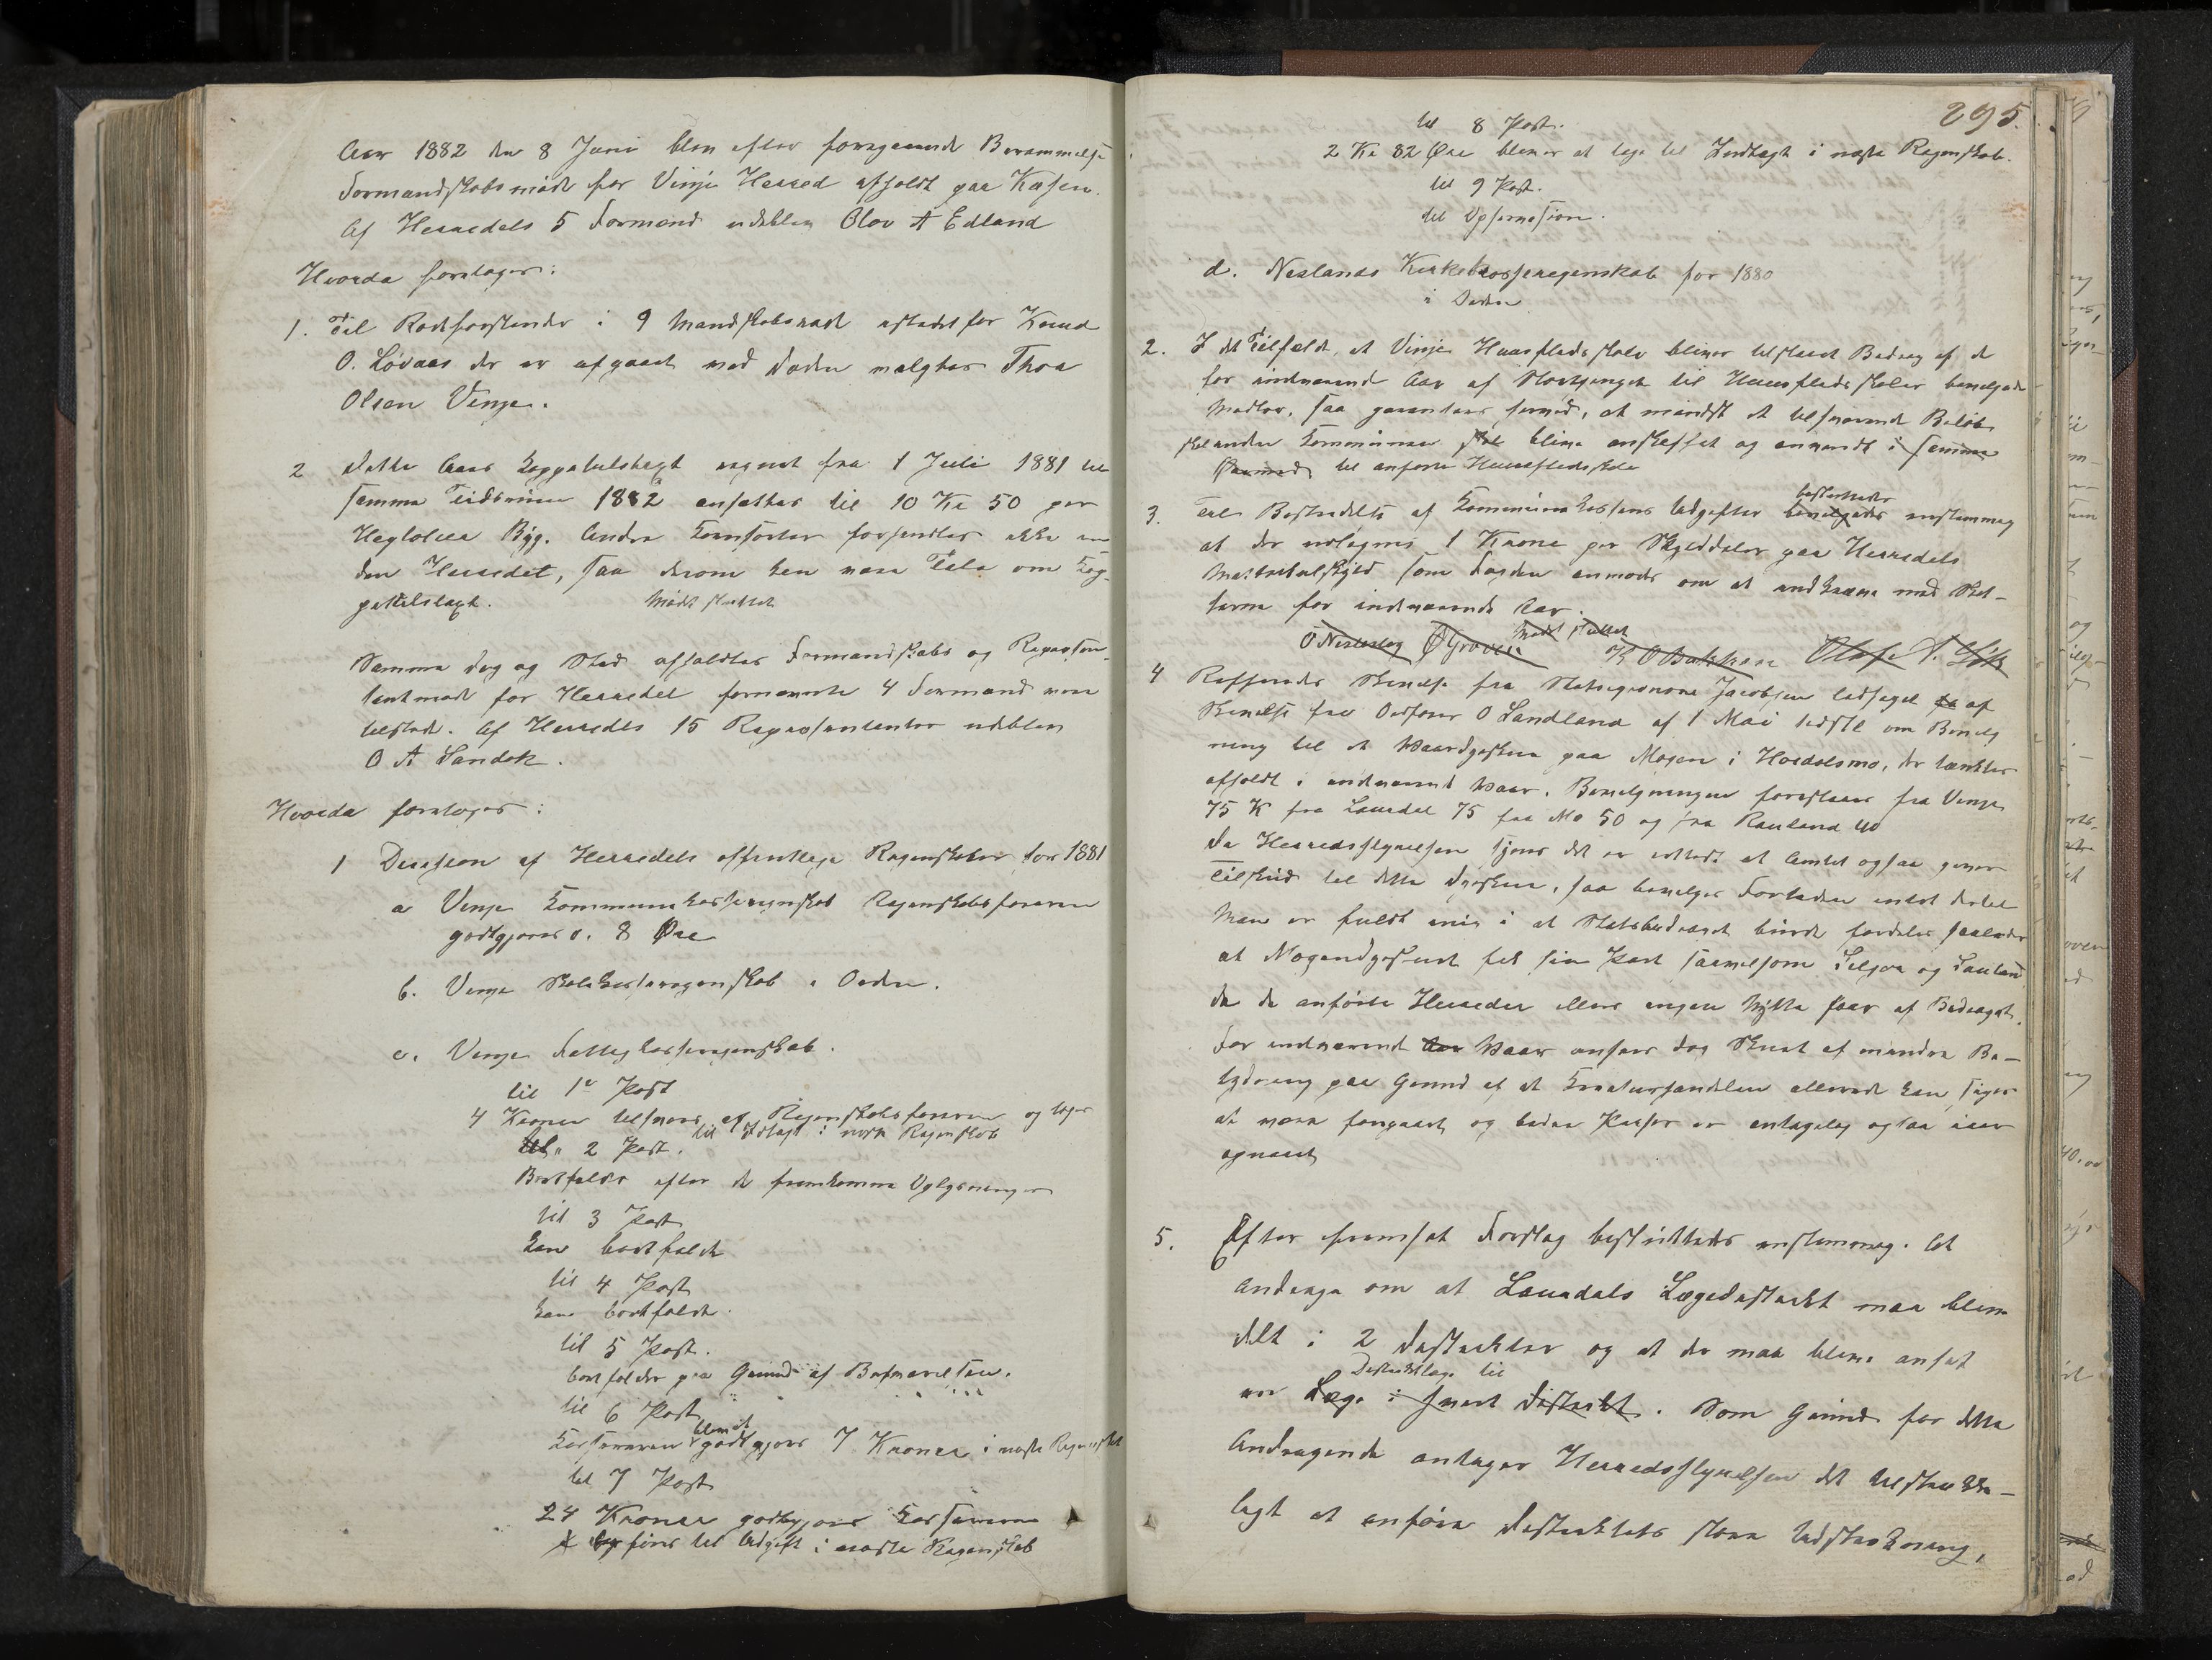 Aar 1882 den 8 Juni blev efter foregaaende Berammelse
Formandskabsmøde for Vinje Herred afholdt paa Kasen.
Af Herredets 5 Formænd udeblev Olav A Edland
Hvorda foretoges:
1. Til Rodeforstander i 9 Mandskabsrode istedetfor Knud
O. Løvaas der er afgaaet ved Døden valgtes Thor
Olsen Vinje.
2 Dette Aars Kappitelstagt regnet fra 1 Juli 1881 til
samme Tidsrum 1882 ansættes til 10 Kr 50 per
Hectoliter Byg. Andre Kornsorter forhandles ikke in
den Herredet, saa derom kan være Tale om Kap-
pitelstagt. Mødet sluttet
Samme Dag og Sted afholdtes Formandskabs og Repræsen-
tantmøde for Herredet fornævnte 4 Formænd vare
tilstede. Af Herredets 15 Repræsentanter udeblev
O A Sandok.
Hvorda foretoges:
1 Decision af Herredets offentlige Regnskaber for 1881
a Vinje Kommunekasseregnskab Regnskabsføreren
godtgjøres 0. 8 Øre
b. Vinje Skolekasseregnskab i Orden.
c. Vinje Fattigkasseregnskab.
til 1e Post
4 Kroner tilsvares af Regnskabsføreren og tages
til Indtægt i næste Regnskab
til 2 Post.
Bortfalder efter de fremkomne Oplysninger
til 3 Post
kan bortfalde
til 4 Post
kan bortfalde.
til 5 Post.
bortfalder paa Grund af Besvarelsen.
til 6 Post
blev
Kassereren godtgjøres 7 Kroner i næste Regnskab
til 7 Post
24 Kroner godtgjøres Kassereren
føres til Udgift i næste Regnskab
295.
til 8 Post.
2 Kr 82 Øre bliver at tage til Indtægt i næste Regnskab.
til 9 Post.
til Observation.
d. Neslands Kirkekasseregnskab for 1880
i Orden
2. I det Tilfælde, at Vinje Husflidsskole bliver tilstaaet Bidrag af de
for indeværende Aar af Storthinget til Husflidsskoler bevilgede
Midler, saa garanteres herved, at mindst et tilsvarende Beløb
Kommunen skal blive anskaffet og anvendt i samme
Øiemed til anførte Husflidsskole
3. Til Bestridelse af Kommunekassens Udgifter bevilgedes besluttedes enstemmig
at der udlignes 1 Krone per Skylddaler paa Herredets
Matrikulskyld som Fogden anmodes om at inddrive med Skat-
terne for indeværende Aar.
Mødet sluttet
O Nesteslog Ø Groven K O Bakken Olaf A. Lök
4 Refereredes Skrivelse fra Statsagronom Jacobsen ledsaget af
Skrivelse fra Ordfører O Sandland af 1 Mai sidstl om Bevilg
ning til et Vaardyrskue paa Mogen i Høidalsmo, der tænktes
afholdt i indeværende Vaar. Bevilgningen foreslaaes fra Vinje
75 K fra Laurdal 75 fra Mo 50 og fra Rauland 40
Da Herredsstyrelsen synes det er rettest at Amtet ogsaa giver
Tilskud til dette Dyrskue, saa bevilges Fortiden intet dertil
Man er fuldt enig i at Statsbidraget burde fordeles saaledes
at Mogendyrskuet fik sin Part saavelsom Seljor og Sauland
da de anførte Herreder ellers ingen Nytte haver af Bidraget.
For indeværende Aar Vaar ansees dog Skuet af mindre Be-
tydning paa Grund af at Kreaturhandelen allerede kan siges
at være foregaaet og bedre Priser er antagelig ogsaa iaar
opnaaet
5. Efter fremsat Forslag besluttedes enstemmig. At
andrage om at Laurdals Lægedistrikt maa blive
delt i 2 Distrikter og at der maa blive ansat
Distriktslæge til
en Læge i hvert Distrikt. Som Grund for dette
Andragende antager Herredsstyrelsen det tilstrække-
ligt at anføre Distriktets store Udstrækning,